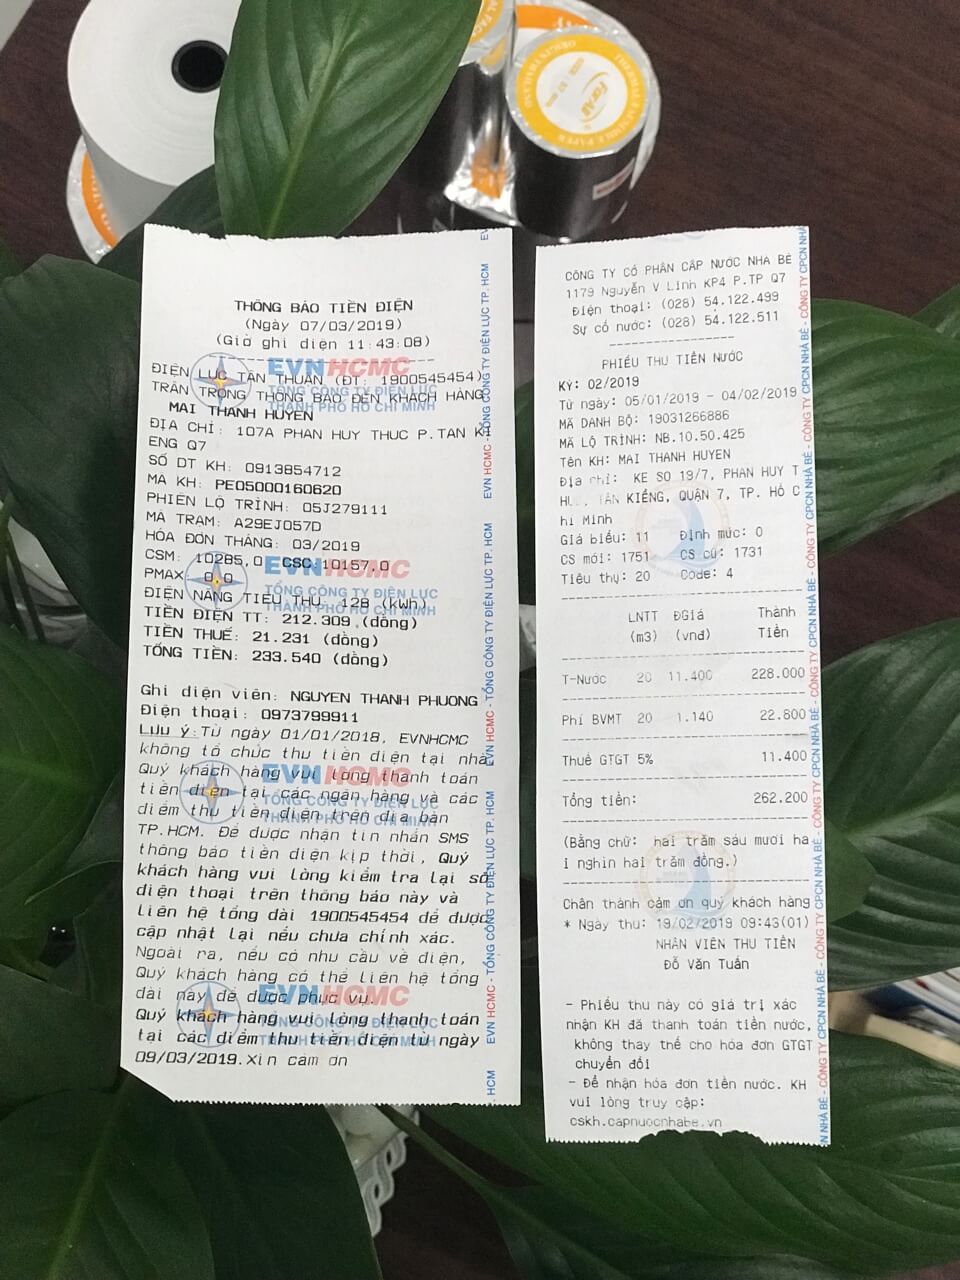 THÔNG BÁO TIỀN ĐIỆN
(Ngày 07/03/2019)
(Giờ ghi điện 11:43:08)
ĐIỆN LỰC TÂN THUẬN (ĐT: 1900545454)
TRÂN TRỌNG THÔNG BÁO ĐẾN KHÁCH HÀNG
MAI THANH HUYEN
ĐỊA CHỈ: 107A PHAN HUY THUC P.TAN KI
ENG Q7
SỐ DT KH: 0913854712
MÃ KH: PE05000160620
PHIÊN LỘ TRÌNH: 05J279111
MÃ TRẠM: A29EJ057D
HÓA ĐƠN THÁNG: 03/2019
CSM: 10285,0 CSC:10157,0
PMAX: 0,0
ĐIỆN NĂNG TIÊU THỤ: 128 (kWh)
TIỀN ĐIỆN TT: 212.309 (đồng)
TIỀN THUẾ: 21.231 (đồng)
TỔNG TIỀN: 233.540 (đồng)
Ghi điện viên: NGUYEN THANH PHUONG
Điện thoại: 0973799911
Lưu ý:Từ ngày 01/01/2018, EVNHCMC
không tổ chức thu tiền điện tại nhà.
Quý khách hàng vui lòng thanh toán
tiền điện tại các ngân hàng và các
điểm thu tiền điện trên địa bàn
TP.HCM. Để được nhận tin nhắn SMS
thông báo tiền điện kịp thời, Quý
khách hàng vui lòng kiểm tra lại số
điện thoại trên thông báo này và
liên hệ tổng đài 1900545454 để được
cập nhật lại nếu chưa chính xác.
Ngoài ra, nếu có nhu cầu về điện,
Quý khách hàng có thể liên hệ tổng
đài này để được phục vụ.
Quý khách hàng vui lòng thanh toán
tại các điểm thu tiền điện từ ngày
09/03/2019.Xin cảm ơn
EVNHCMC
TỔNG CÔNG TY ĐIỆN LỰC
THÀNH PHỐ HỒ CHÍ MINH
EVNHCMC
TỔNG CÔNG TY ĐIỆN LỰC
THÀNH PHỐ HỒ CHÍ MINH
EVNHCMC
TỔNG CÔNG TY ĐIỆN LỰC
THÀNH PHỐ HỒ CHÍ MINH
EVNHCMC
TỔNG CÔNG TY ĐIỆN LỰC
THÀNH PHỐ HỒ CHÍ MINH
EVN HCMC - TỔNG CÔNG TY ĐIỆN LỰC TP. HCM
EVN HCMC - TỔNG CÔNG TY ĐIỆN LỰC TP. HCM
EVN HCMC - TỔNG CÔNG TY ĐIỆN LỰC TP. HCM
CÔNG TY CỔ PHẦN CẤP NƯỚC NHÀ BÈ
1179 Nguyễn V Linh KP4 P.TP Q7
Điện thoại: (028) 54.122.499
Sự cố nước: (028) 54.122.511
PHIẾU THU TIỀN NƯỚC
KỲ: 02/2019
Từ ngày: 05/01/2019 - 04/02/2019
MÃ DANH BỘ: 19031266886
MÃ LỘ TRÌNH: NB.10.50.425
Tên KH: MAI THANH HUYEN
Địa chỉ: KE SO 19/7, PHAN HUY T
TÂN KIỂNG, QUẬN 7, TP. HỒ C
hí Minh
Giá biểu: 11 Định mức: 0
CS mới: 1751 CS cũ: 1731
Tiêu thụ: 20 Code: 4
LNTT ĐGiá Thành
(m3) (vnđ) Tiền
T-Nước 20 11.400 228.000
Phí BVMT 20 1.140 22.800
Thuế GTGT 5% 11.400
Tổng tiền: 262.200
(Bằng chữ: hai trăm sáu mươi ha
i nghìn hai trăm đồng.)
Chân thành cảm ơn quý khách hàng
* Ngày thu: 19/02/2019 09:43(01)
NHÂN VIÊN THU TIỀN
Đỗ Văn Tuấn
- Phiếu thu này có giá trị xác
nhận KH đã thanh toán tiền nước,
không thay thế cho hóa đơn GTGT
chuyển đổi
- Để nhận hóa đơn tiền nước. KH
vui lòng truy cập:
cskh.capnuocnhabe.vn
CÔNG TY CPCN NHÀ BÈ - CÔNG TY CPCN NHÀ BÈ - CÔNG TY CPCN NHÀ BÈ - CÔNG TY CPCN NHÀ BÈ
ForAll
THERMAL SENSIBLE PAPER